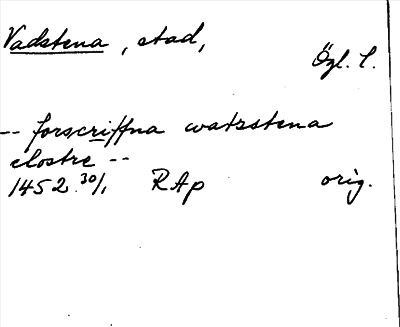 Vadstena, stad,
Ögl. l.
-- forscriffna watzstena
clostre --
1452 30/1 RAp orig.